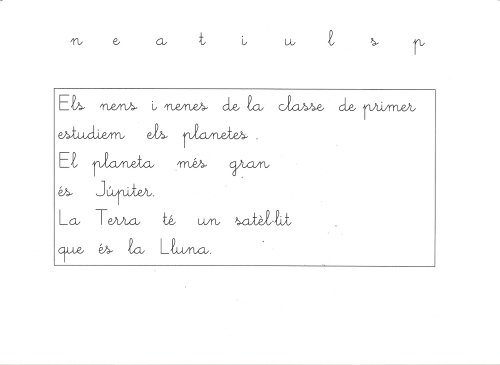 n e a t i u l s p
Els nens i nenes de la classe de primer
estudiem els planetes .
El planeta més gran
és Júpiter.
La Terra té un satèl·lit
que és la Lluna.